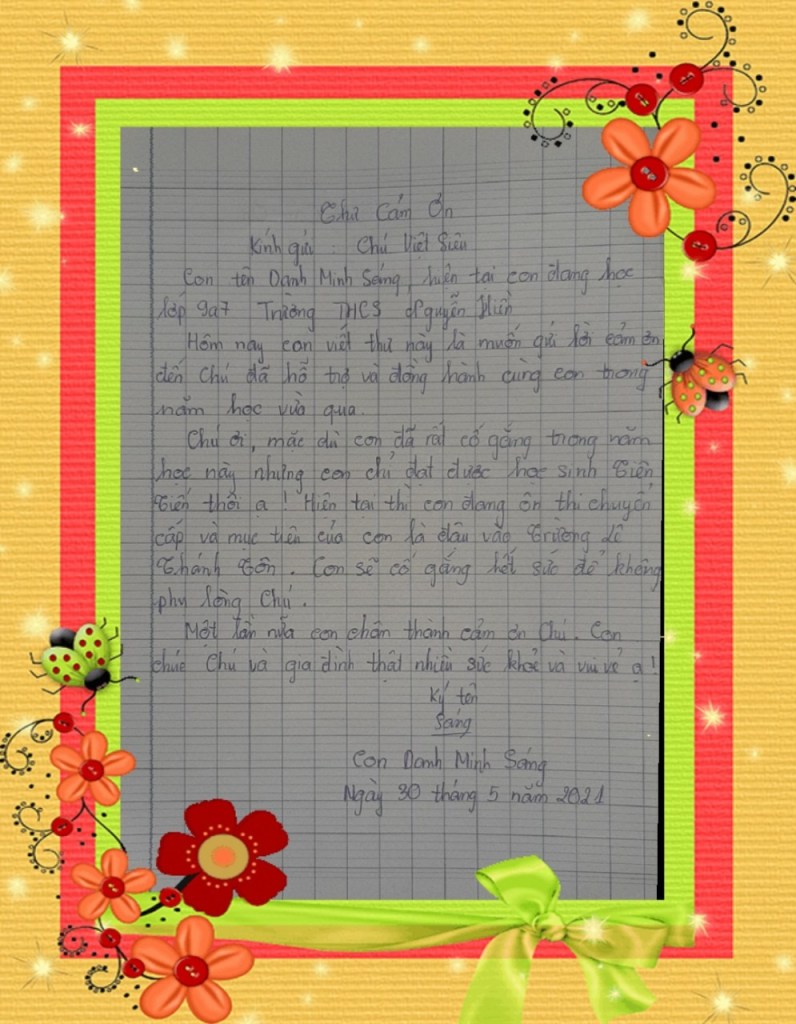 Thư Cảm Ơn
Kính gửi : Chú Việt Siêu
Con tên Danh Minh Sáng, hiện tại con đang học
lớp 9a7 Trường THCS Nguyễn Hiền
Hôm nay con viết thư này là muốn gửi lời cảm ơn
đến Chú đã hỗ trợ và đồng hành cùng con trong
năm học vừa qua.
Chú ơi, mặc dù con đã rất cố gắng trong năm
học này nhưng con chỉ đạt được học sinh Tiên
Tiến thôi ạ ! Hiện tại thì con đang ôn thi chuyển
cấp và mục tiêu của con là đậu vào Trường Lê
Thánh Tôn. Con sẽ cố gắng hết sức để không
phụ lòng Chú.
Một lần nữa con chân thành cảm ơn Chú. Con
chúc Chú và gia đình thật nhiều sức khoẻ và vui vẻ ạ !
Ký tên
Sáng
Con Danh Minh Sáng
Ngày 30 tháng 5 năm 2021